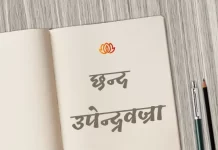 छन्द
उपेन्द्रवज्रा